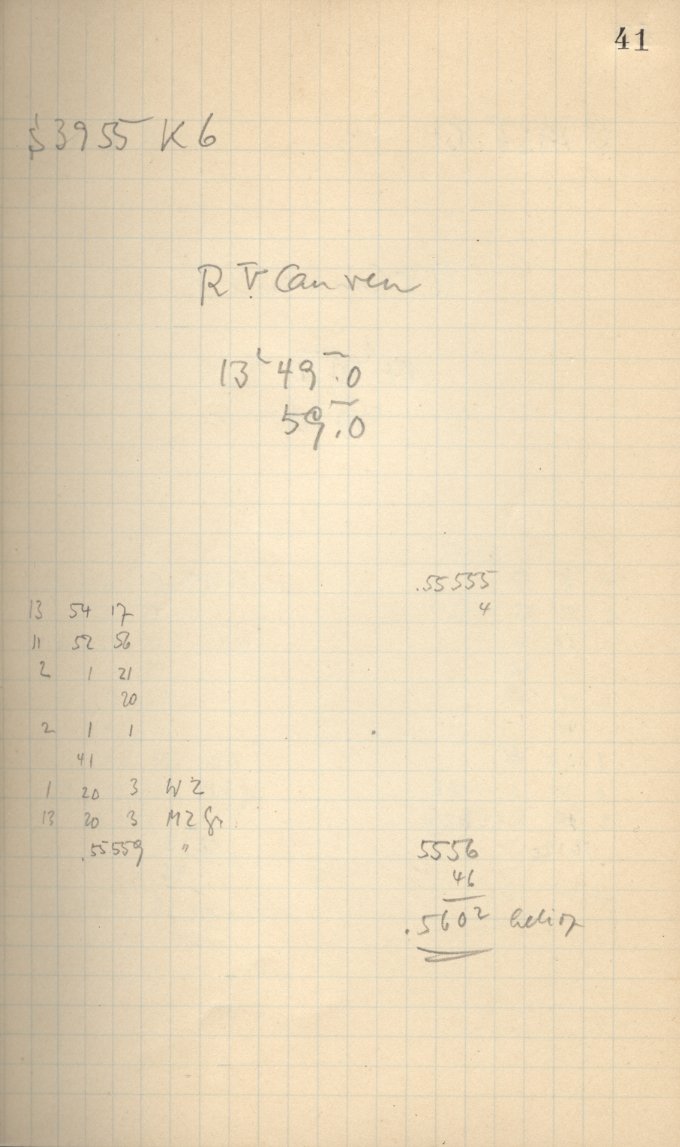 41
§ 3955 K 6
R V Can ven
13 49.0
59.0
.55555
4
13 54 17
11 52 56
2 1 21
20
2 1 1
41
1 20 3 WZ
13 20 3 MZGr.
.55559 "
5556
46
.5602 helioz